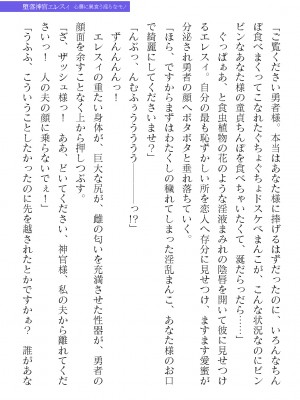 堕落神官エレスィ
「ご覧ください勇者様。本当はあなた様に捧げるはずだったのに、いろんなちん
ぽ食べまくってこなれたぐちょぐちょドスケベまんこが、こんな状況なのにビン
ビンなあなた様の童貞ちんぽを食べちゃいたくて、涎だらだら……」
ぐっぱぁあ、と食虫植物の花のような淫液まみれの陰唇を開いて彼に見せつけ
るエレスィ。自分の最も恥ずかしい所を恋人へ存分に見せつけ、ますます愛蜜が
分泌され勇者の顔へボタボタと垂れ落ちていく。
「ほら、ですからまずはわたくしの穢れてしまった淫乱まんこ、あなた様のお口
で綺麗にしてくださいませ？」
ずんんんん！
「んぶっ、んむふぅうううう　　っ!?」
エレスィの重たい身体が、巨大な尻が、雌の匂いを充満させた性器が、勇者の
顔面を余すことなく上から押しつぶす。
「ざ、ザッシュ様っ！　ああ、どいてください、神官様、私の夫から離れてくだ
さいっ！　人の夫の顔に乗らないでぇ！」
「うふふ、こういうことしたかったのに先を越されたとかですかぁ？　誰があな